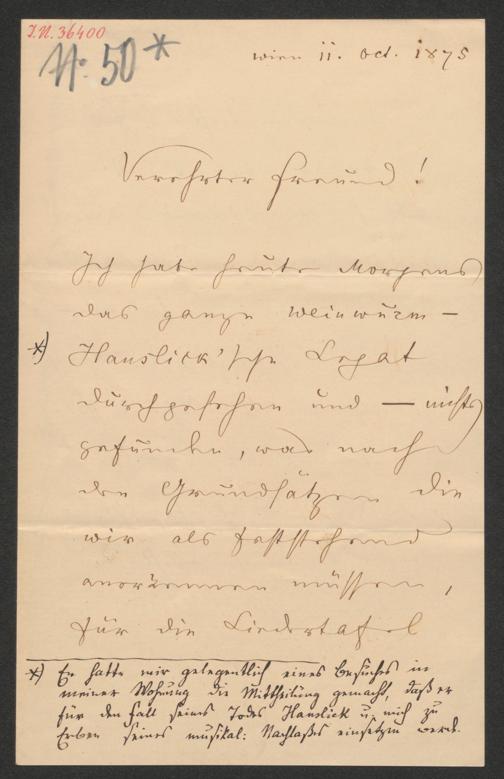 I.N. 36400
No. 50 *
Wien 11. Oct. 1875
Verehrter Freund!
Ich habe heute Morgens
das ganze Weinwurm-
*) Hanslick'sche Legat
durchgesehen und — nichts
gefunden, was nach
den Grundsätzen die
wir als feststehend
anerkennen müssen,
für die Liedertafel
*) Er hatte mir gelegentlich eines Besuches in
meiner Wohnung die Mittheilung gemacht, daß er
für den Fall seines Todes Hanslick u. mich zu
Erben seines musikal: Nachlaßes einsetzen werde.